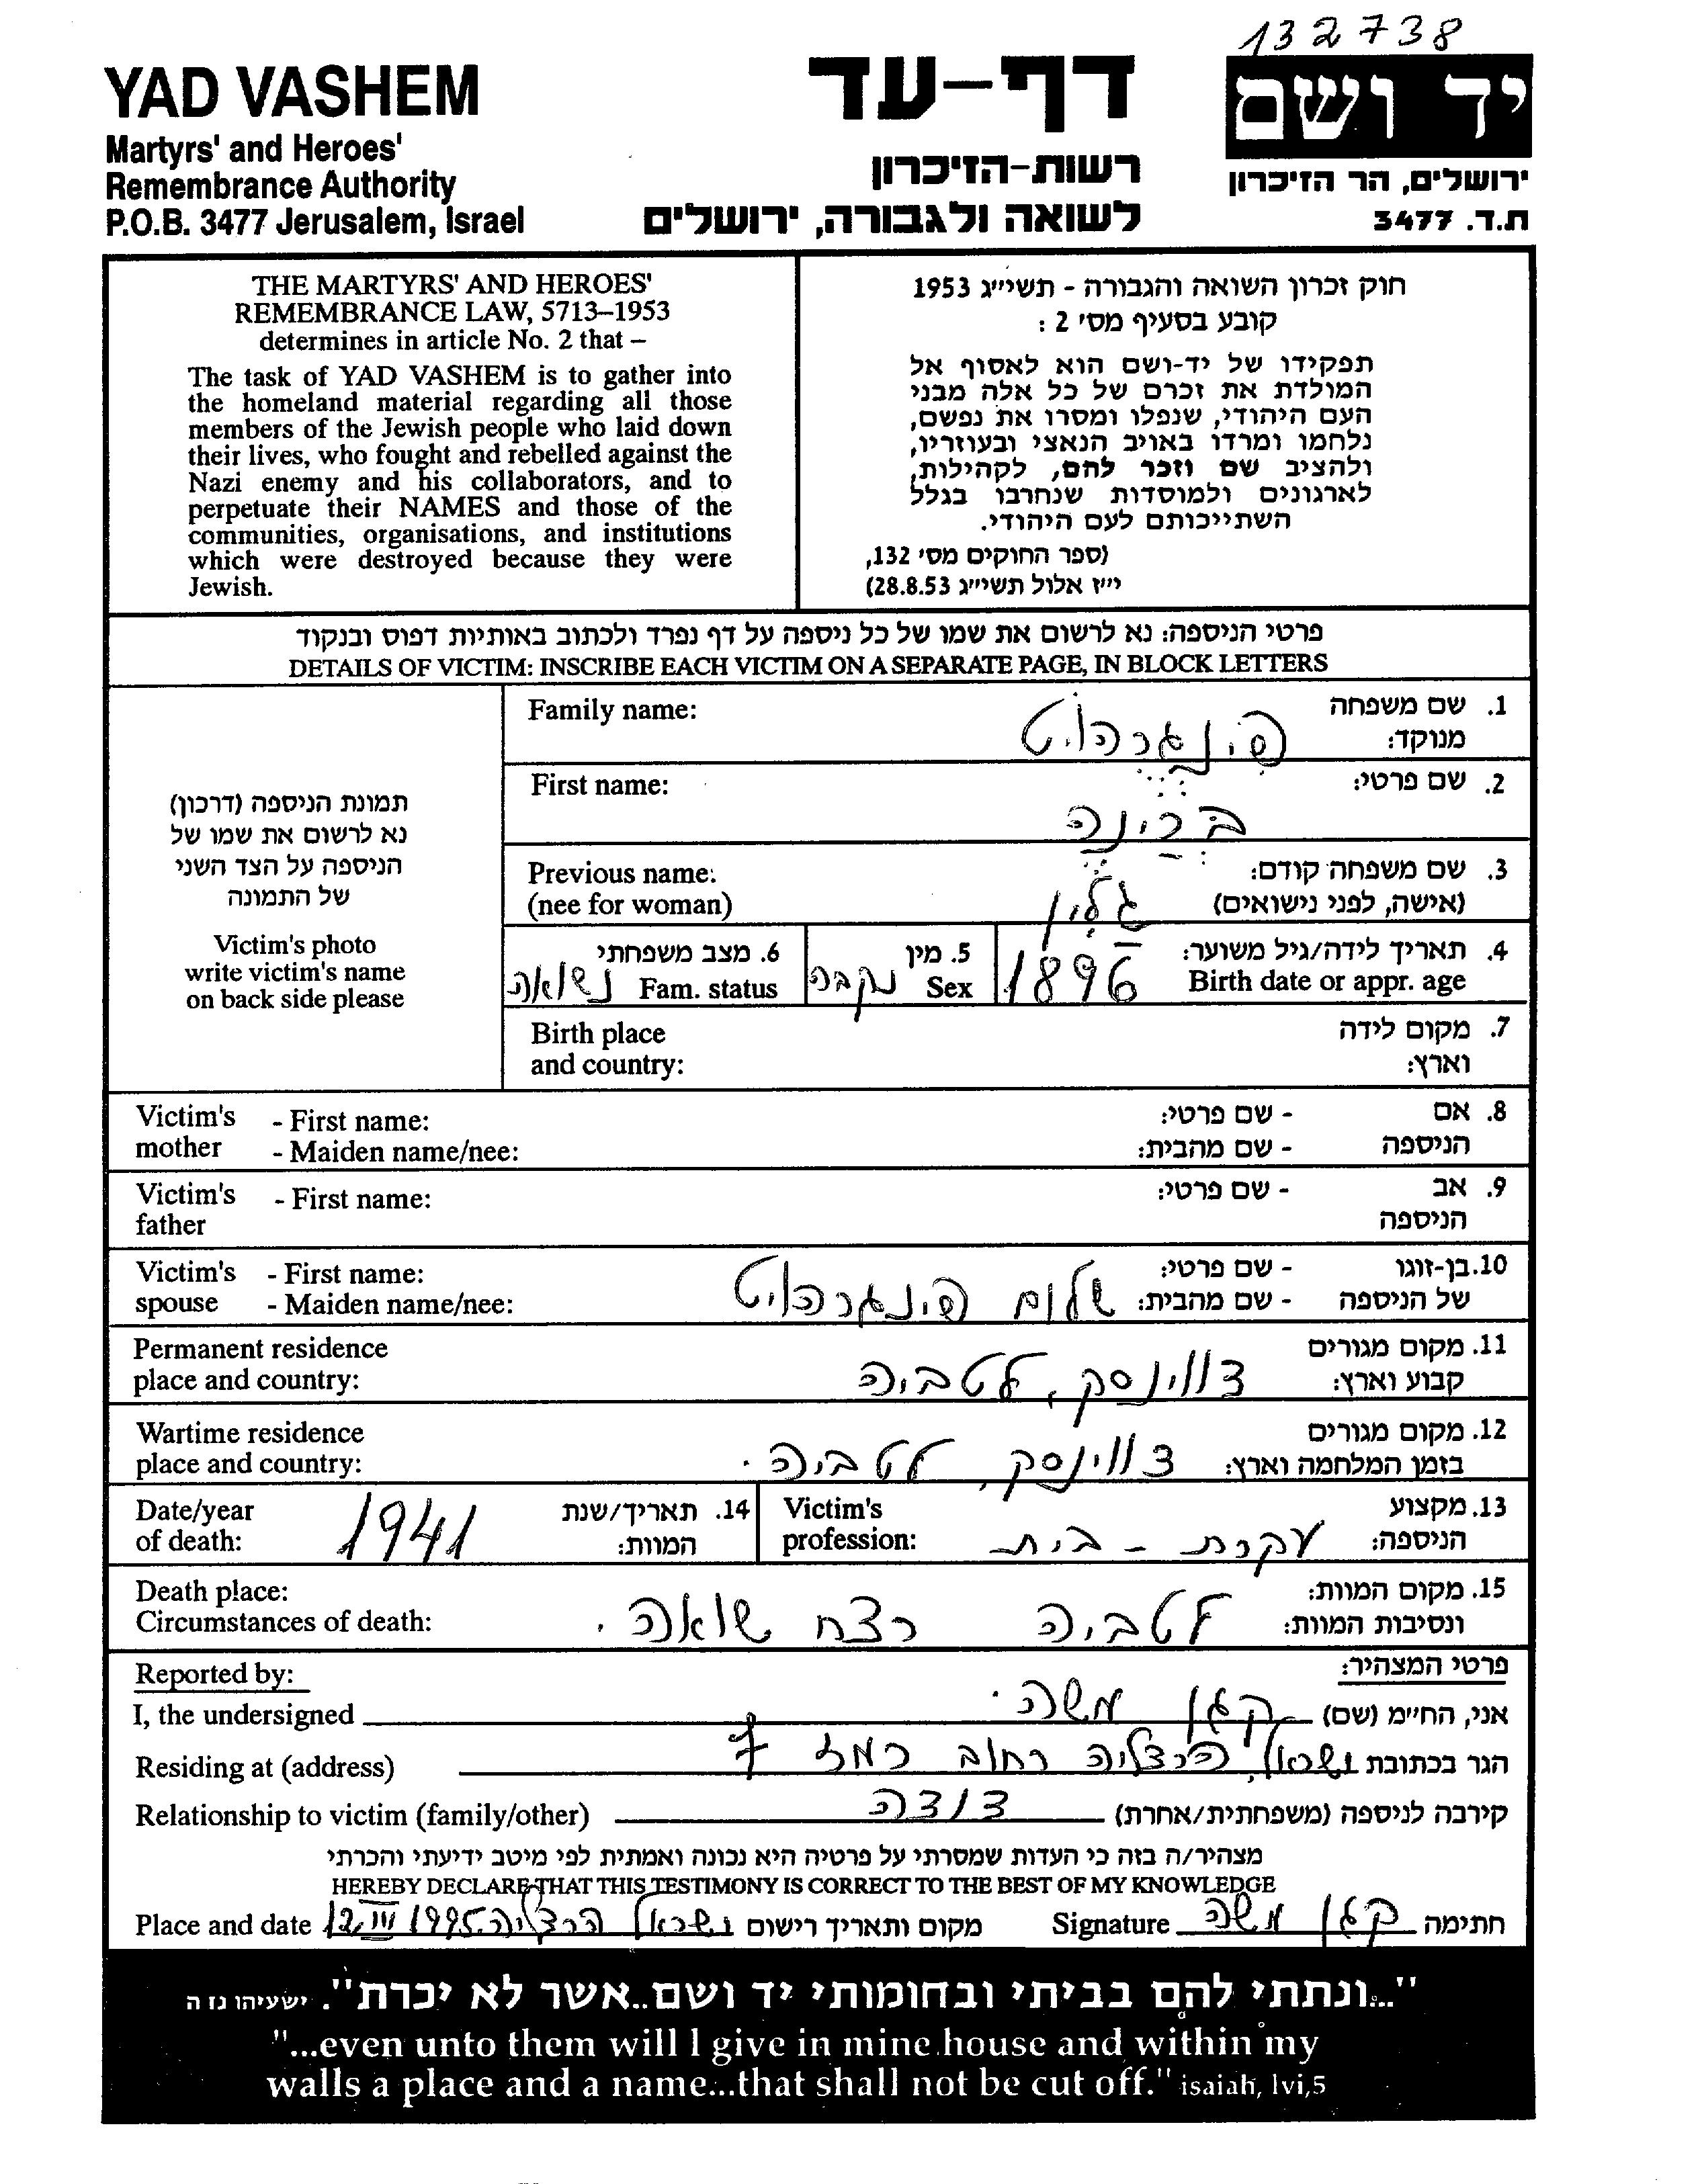 132738
YAD VASHEM
Martyrs' and Heroes'
Remembrance Authority
P.O.B. 3477 Jerusalem, Israel
דף-עד
רשות-הזיכרון
לשואה ולגבורה, ירושלים
יד ושם
ירושלים, הר הזיכרון
ת.ד. 3477
THE MARTYRS' AND HEROES'
REMEMBRANCE LAW, 5713–1953
determines in article No. 2 that –
The task of YAD VASHEM is to gather into
the homeland material regarding all those
members of the Jewish people who laid down
their lives, who fought and rebelled against the
Nazi enemy and his collaborators, and to
perpetuate their NAMES and those of the
communities, organisations, and institutions
which were destroyed because they were
Jewish.
חוק זכרון השואה והגבורה - תשי״ג 1953
קובע בסעיף מס' 2 :
תפקידו של יד-ושם הוא לאסוף אל
המולדת את זכרם של כל אלה מבני
העם היהודי, שנפלו ומסרו את נפשם,
נלחמו ומרדו באויב הנאצי ובעוזריו,
ולהציב שם וזכר להם, לקהילות,
לארגונים ולמוסדות שנחרבו בגלל
השתייכותם לעם היהודי.
(ספר החוקים מס' 132,
י״ז אלול תשי״ג 28.8.53)
פרטי הניספה: נא לרשום את שמו של כל ניספה על דף נפרד ולכתוב באותיות דפוס ובנקוד
DETAILS OF VICTIM: INSCRIBE EACH VICTIM ON A SEPARATE PAGE, IN BLOCK LETTERS
תמונת הניספה (דרכון)
נא לרשום את שמו של
הניספה על הצד השני
של התמונה
Victim's photo
write victim's name
on back side please
Family name: פינגרהויט 1. שם משפחה
מנוקד:
First name: ברינה 2. שם פרטי:
Previous name: 3. שם משפחה קודם:
(nee for woman) (אישה, לפני נישואים)
4. תאריך לידה/גיל משוער:
Birth date or appr. age 1896
5. מין
Sex נקבה
6. מצב משפחתי
Fam. status נשואה
Birth place 7. מקום לידה
and country: וארץ:
Victim's - First name: - שם פרטי: 8. אם
mother - Maiden name/nee: - שם מהבית: הניספה
Victim's - First name: - שם פרטי: 9. אב
father הניספה
Victim's - First name: - שם פרטי: 10. בן-זוגו
spouse - Maiden name/nee: שלום פינגרהויט - שם מהבית: של הניספה
Permanent residence 11. מקום מגורים
place and country: דווינסק, לטביה קבוע וארץ:
Wartime residence 12. מקום מגורים
place and country: דווינסק, לטביה. בזמן המלחמה וארץ:
Date/year 14. תאריך/שנת
of death: 1941 המוות:
Victim's 13. מקצוע
profession: עקרת - בית הניספה:
Death place: 15. מקום המוות:
Circumstances of death: לטביה רצח שואה. ונסיבות המוות:
Reported by: פרטי המצהיר:
I, the undersigned קגן משה. אני, החי״מ (שם)
Residing at (address) ישראל, הרצליה רחוב רמז 7 הגר בכתובת
Relationship to victim (family/other) דודה קירבה לניספה (משפחתית/אחרת)
מצהיר/ה בזה כי העדות שמסרתי על פרטיה היא נכונה ואמתית לפי מיטב ידיעתי והכרתי
HEREBY DECLARE THAT THIS TESTIMONY IS CORRECT TO THE BEST OF MY KNOWLEDGE
Place and date 12.III 1995. ישראל הרצליה מקום ותאריך רישום Signature קגן משה חתימה
"...ונתתי להם בביתי ובחומותי יד ושם..אשר לא יכרת". ישעיהו נז ה
"...even unto them will I give in mine house and within my
walls a place and a name...that shall not be cut off." isaiah, lvi,5